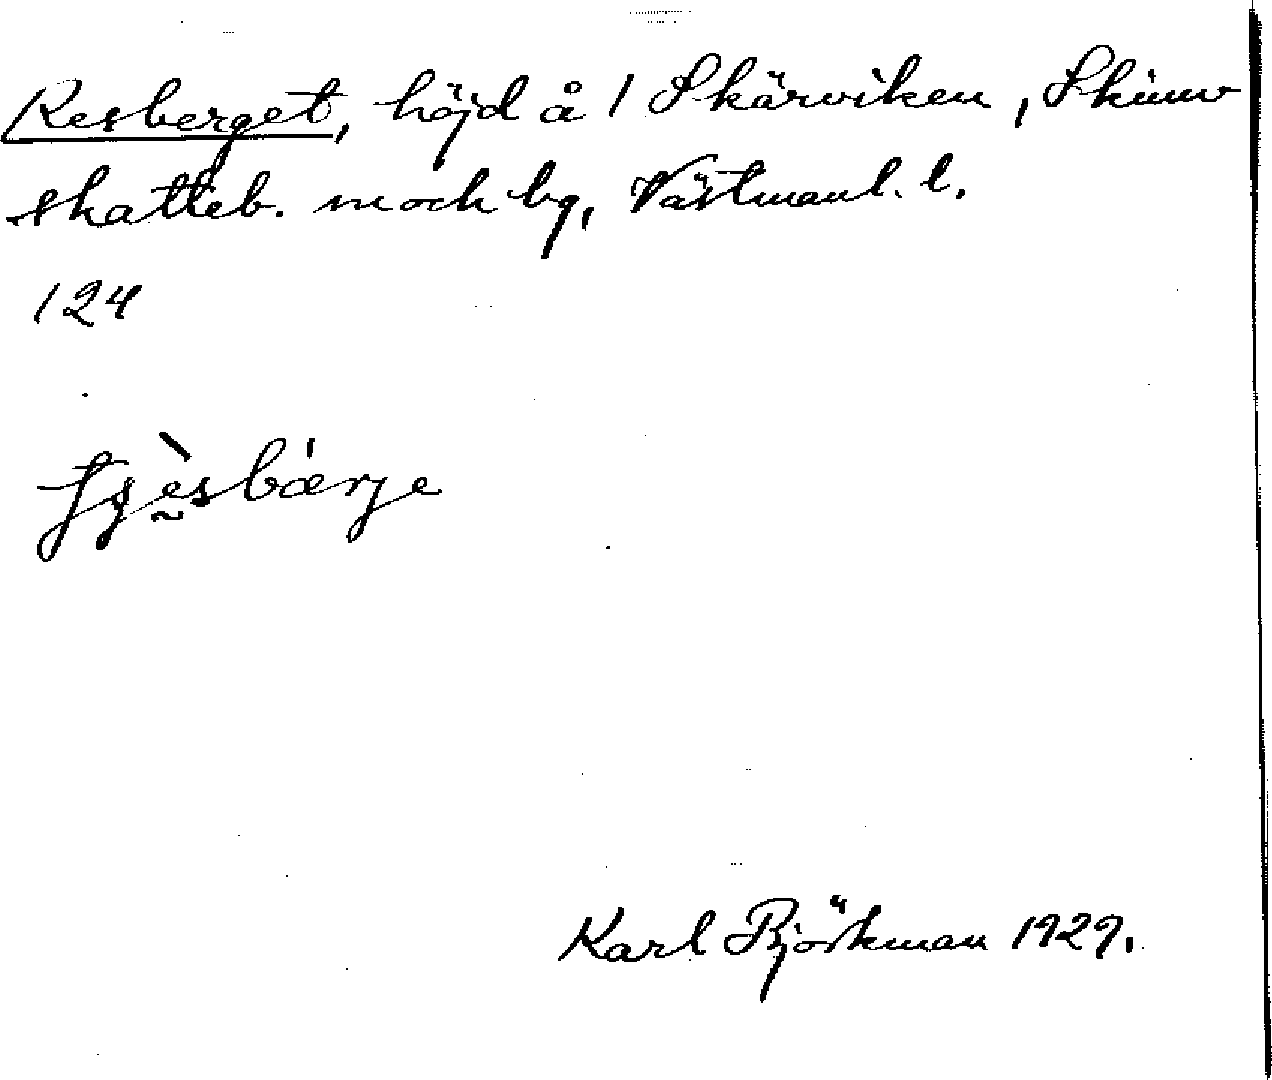 Resberget, höjd å 1 Skärviken, Skinn-
skatteb. sn och bg, Västmanl. l.
124
Karl Björkman 1929.